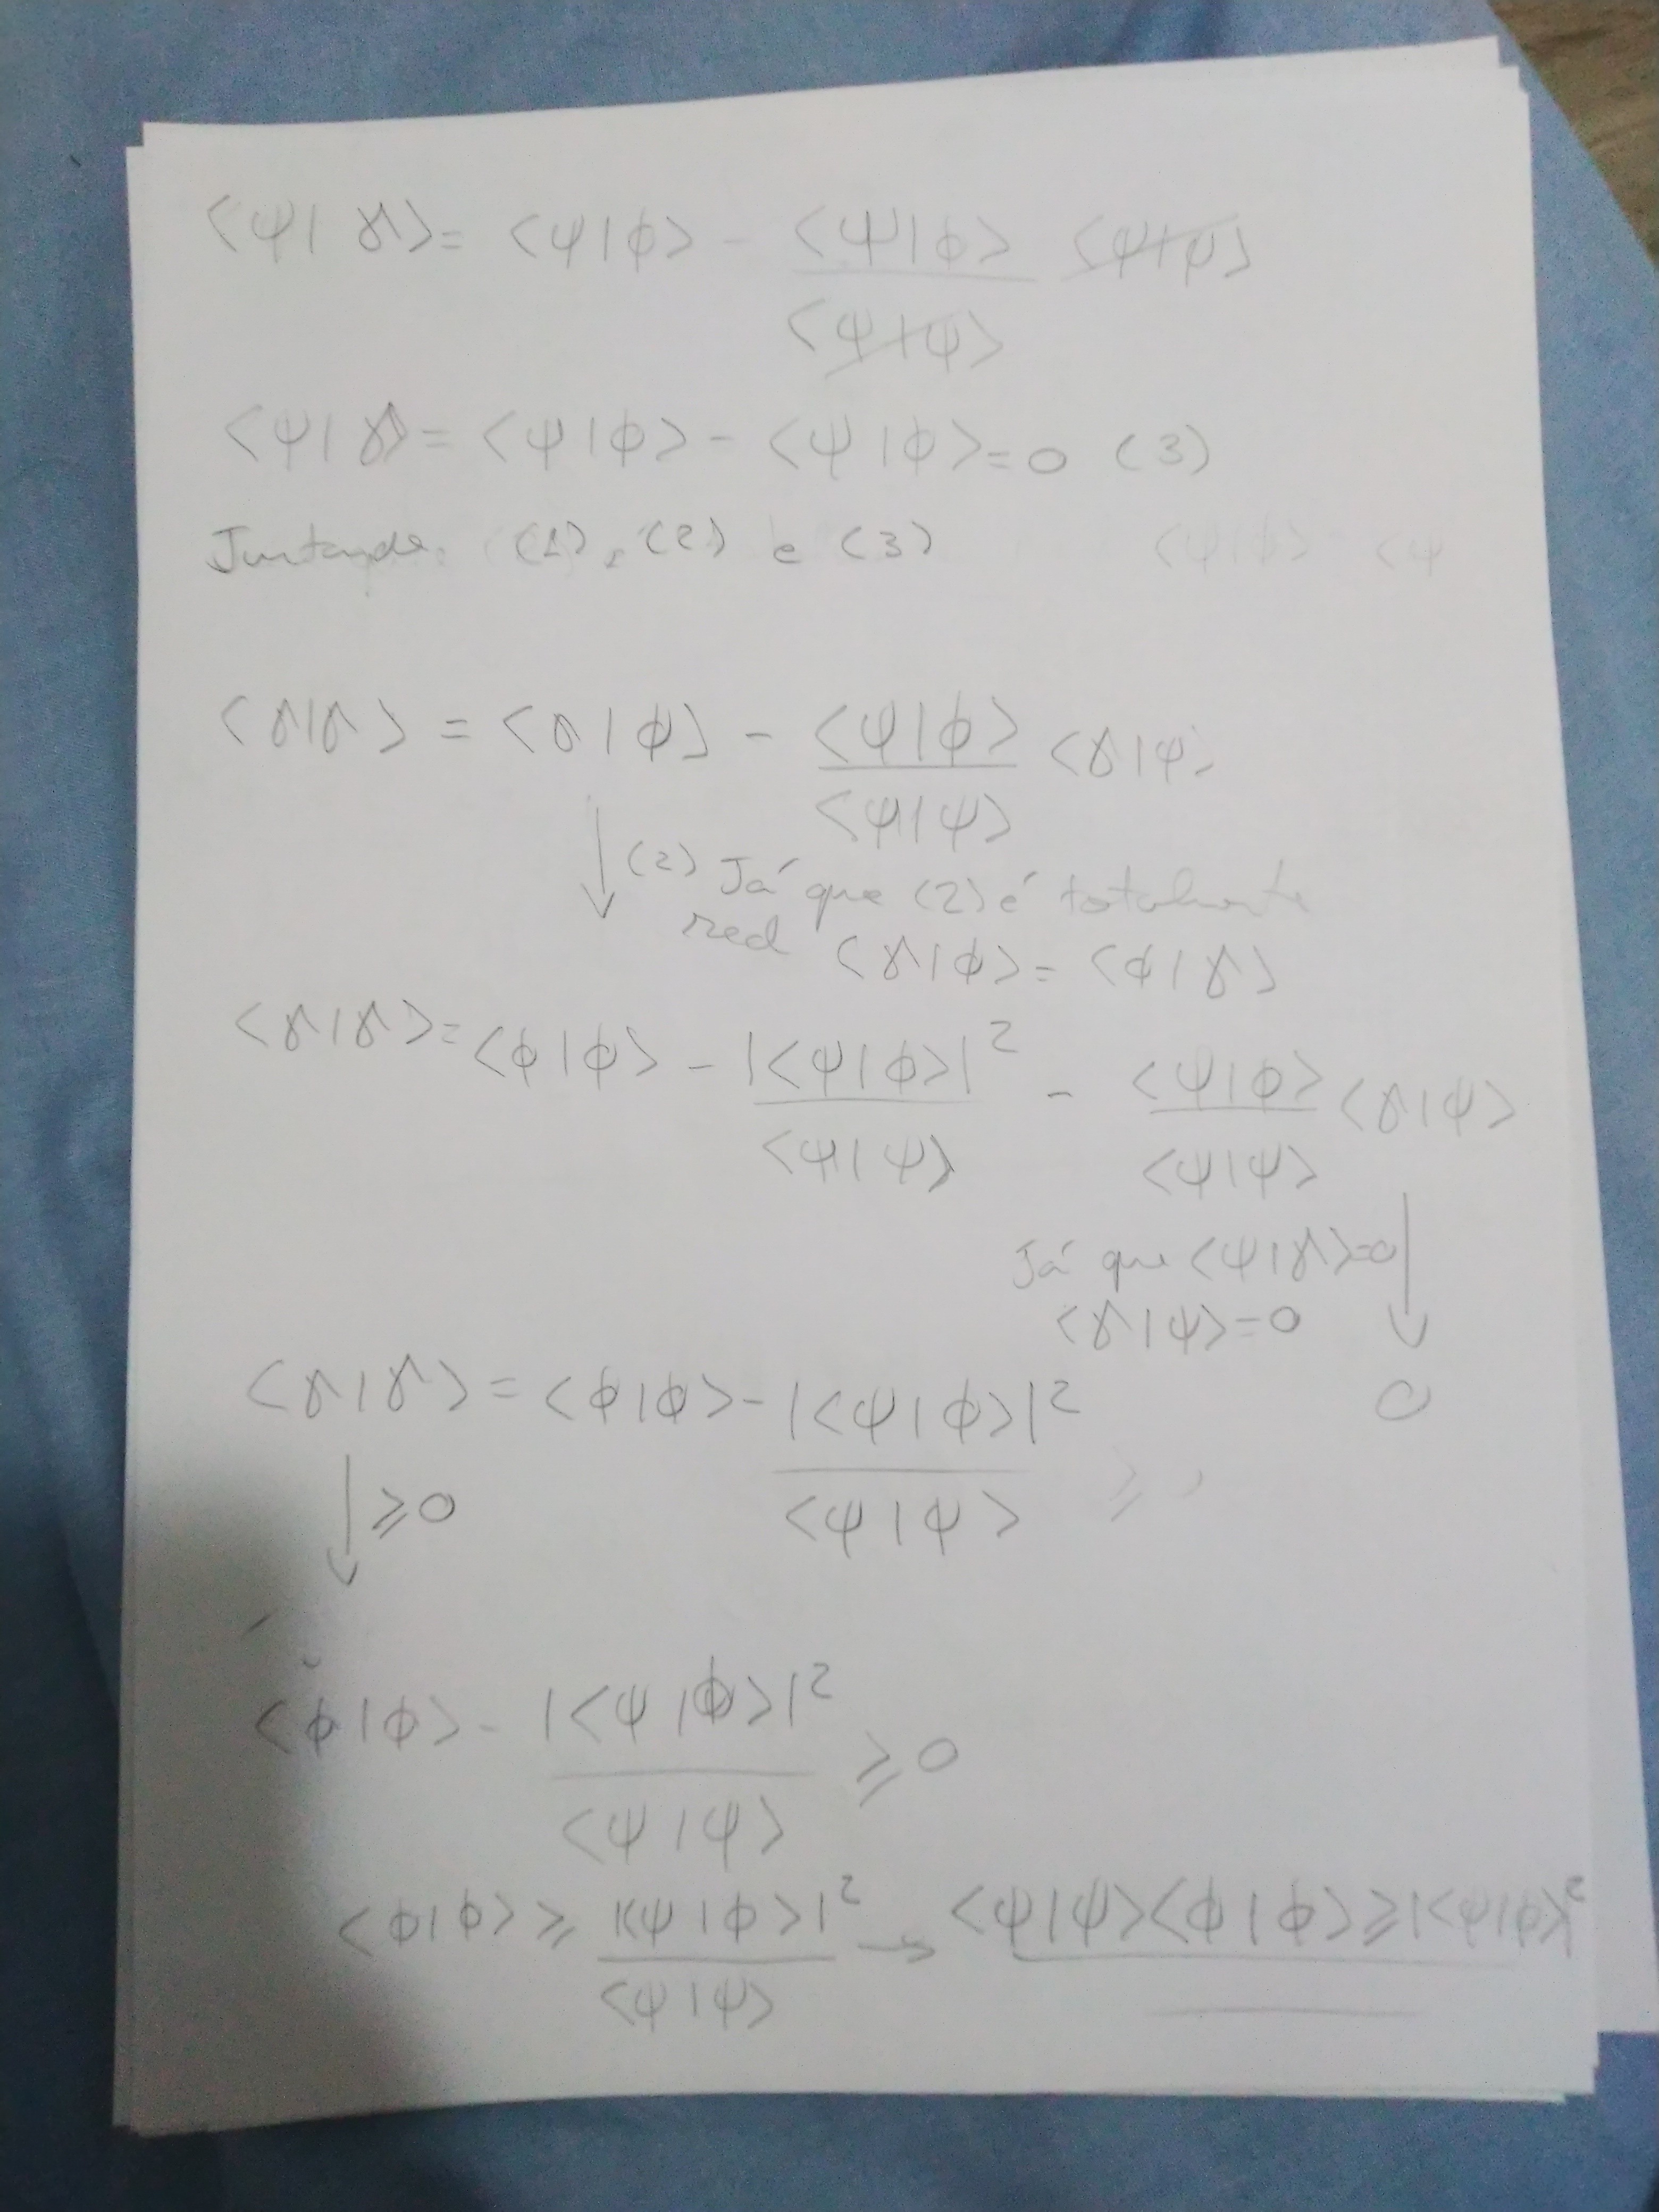 <ψ|γ> = <ψ|φ> - <ψ|φ>/<ψ|ψ> <ψ|ψ>
<ψ|γ> = <ψ|φ> - <ψ|φ> = 0 (3)
Juntando (1), (2) e (3)
<γ|γ> = <γ|φ> - <ψ|φ>/<ψ|ψ> <γ|ψ>
(2) Já que (2) é totalmente
real <γ|φ> = <φ|γ>
<γ|γ> = <φ|φ> - |<ψ|φ>|²/<ψ|ψ> - <ψ|φ>/<ψ|ψ> <γ|ψ>
Já que <ψ|γ>=0
<γ|ψ>=0
0
<γ|γ> = <φ|φ> - |<ψ|φ>|²/<ψ|ψ>
≥0
<φ|φ> - |<ψ|φ>|²/<ψ|ψ> ≥ 0
<φ|φ> ≥ |<ψ|φ>|²/<ψ|ψ> → <ψ|ψ><φ|φ> ≥ |<ψ|φ>|²